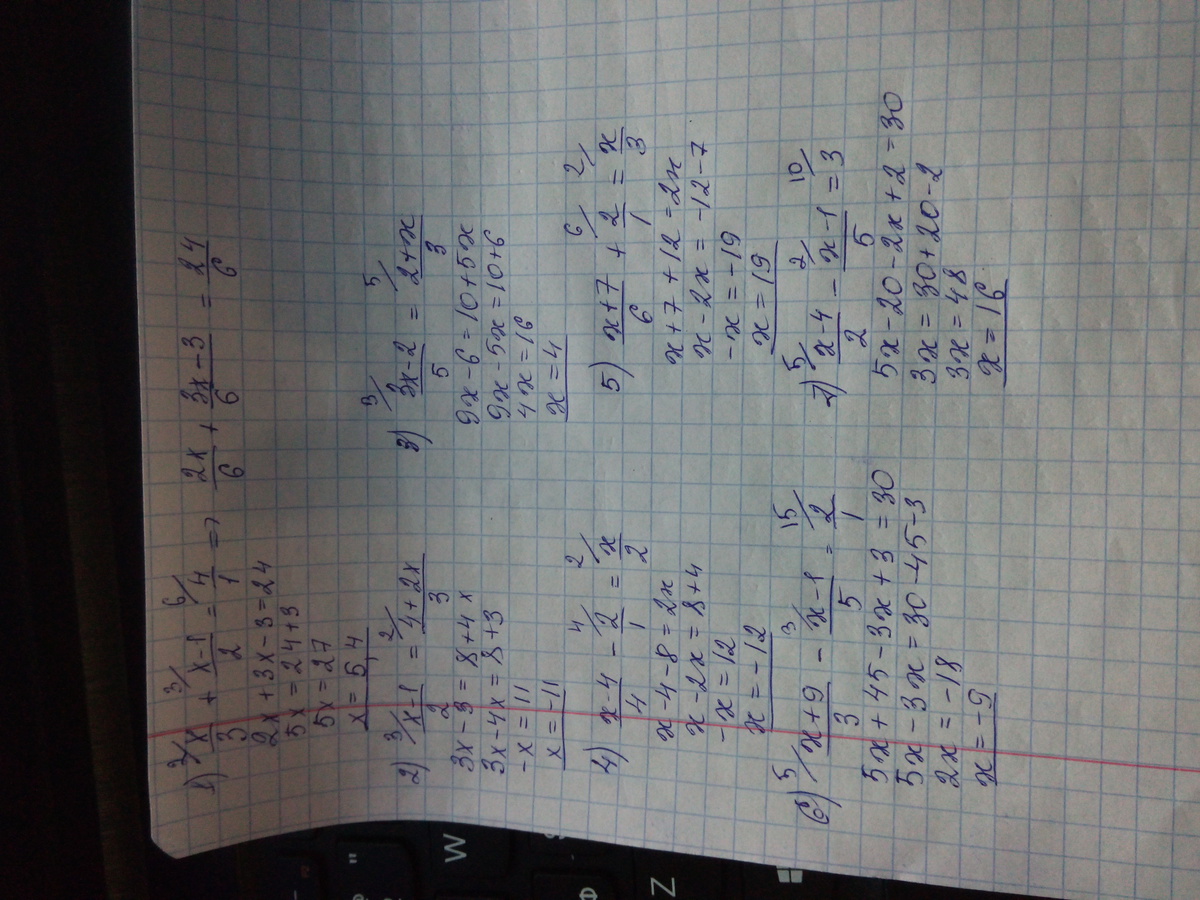 1) 2/ x/3 + 3/ (x-1)/2 = 6/ 4/1 => 2x/6 + (3x-3)/6 = 24/6
2x + 3x - 3 = 24
5x = 24+3
5x = 27
x = 5,4
2) 3/ (x-1)/2 = 2/ (4+2x)/3
3x - 3 = 8+4x
3x - 4x = 8+3
-x = 11
x = -11
3) 3/ (3x-2)/5 = 5/ (2+x)/3
9x - 6 = 10+5x
9x - 5x = 10+6
4x = 16
x = 4
4) (x-4)/4 - 4/ 2/1 = 2/ x/2
x-4-8 = 2x
x-2x = 8+4
-x = 12
x = -12
5) (x+7)/6 + 6/ 2/1 = 2/ x/3
x+7+12 = 2x
x-2x = -12-7
-x = -19
x = 19
6) 5/ (x+9)/3 - 3/ (x-1)/5 = 15/ 2/1
5x+45-3x+3 = 30
5x-3x = 30-45-3
2x = -18
x = -9
7) 5/ (x-4)/2 - 2/ (x-1)/5 = 10/ 3
5x-20-2x+2 = 30
3x = 30+20-2
3x = 48
x = 16
W
Z
Ф